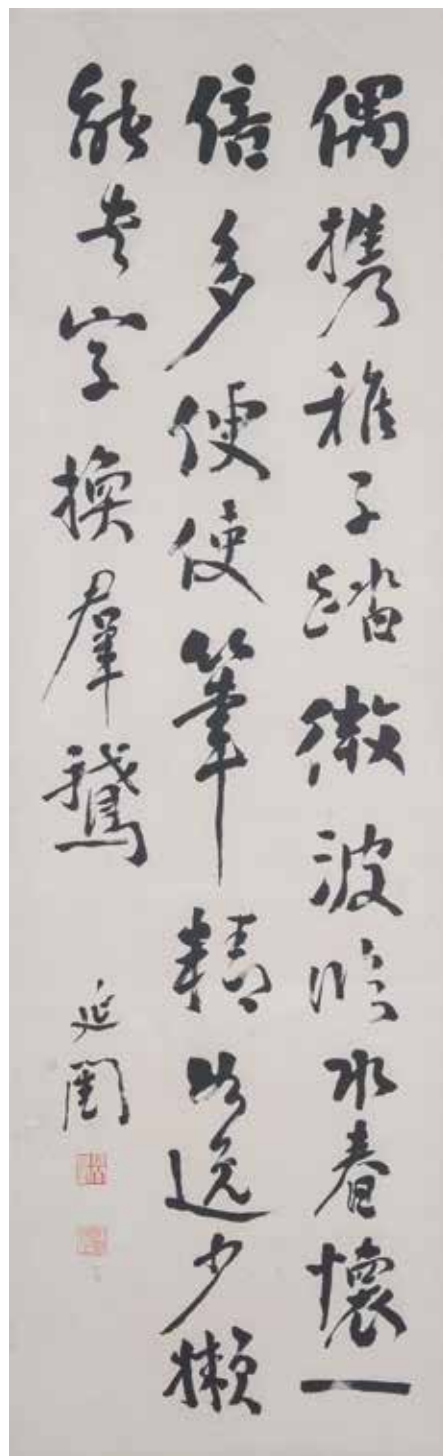 偶携稚子踏微波臨水春懷一
倍多便使筆精如逸少懶
能書字換羣鵞
延闓